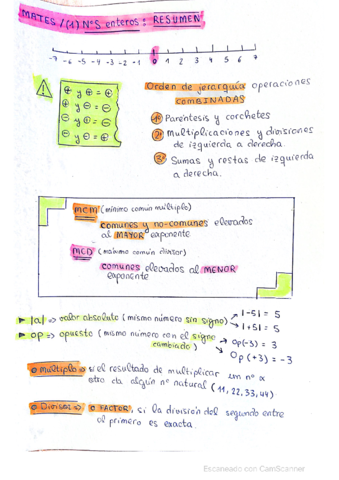 MATES / (1) NºS enteros: RESUMEN
-7 -6 -5 -4 -3 -2 -1 0 1 2 3 4 5 6 7
⊕ y ⊕ = ⊕
⊕ y ⊖ = ⊖
⊖ y ⊕ = ⊖
⊖ y ⊖ = ⊕
Orden de jerarquía operaciones
COMBINADAS
1º Paréntesis y corchetes
2º Multiplicaciones y divisiones
de izquierda a derecha.
3º Sumas y restas de izquierda
a derecha.
MCM (mínimo común múltiplo)
comunes y no-comunes elevados
al MAYOR exponente
MCD (máximo común divisor)
comunes elevados al MENOR
exponente
|a| => valor absoluto (mismo número sin signo) → |-5| = 5
→ |+5| = 5
op => opuesto (mismo número con el signo
cambiado) → Op(-3) = 3
Op(+3) = -3
Múltiplo => si el resultado de multiplicar un nº x
otro da algún nº natural (11, 22, 33, 44)
Divisor => o FACTOR, si la división del segundo entre
el primero es exacta.
Escaneado con CamScanner